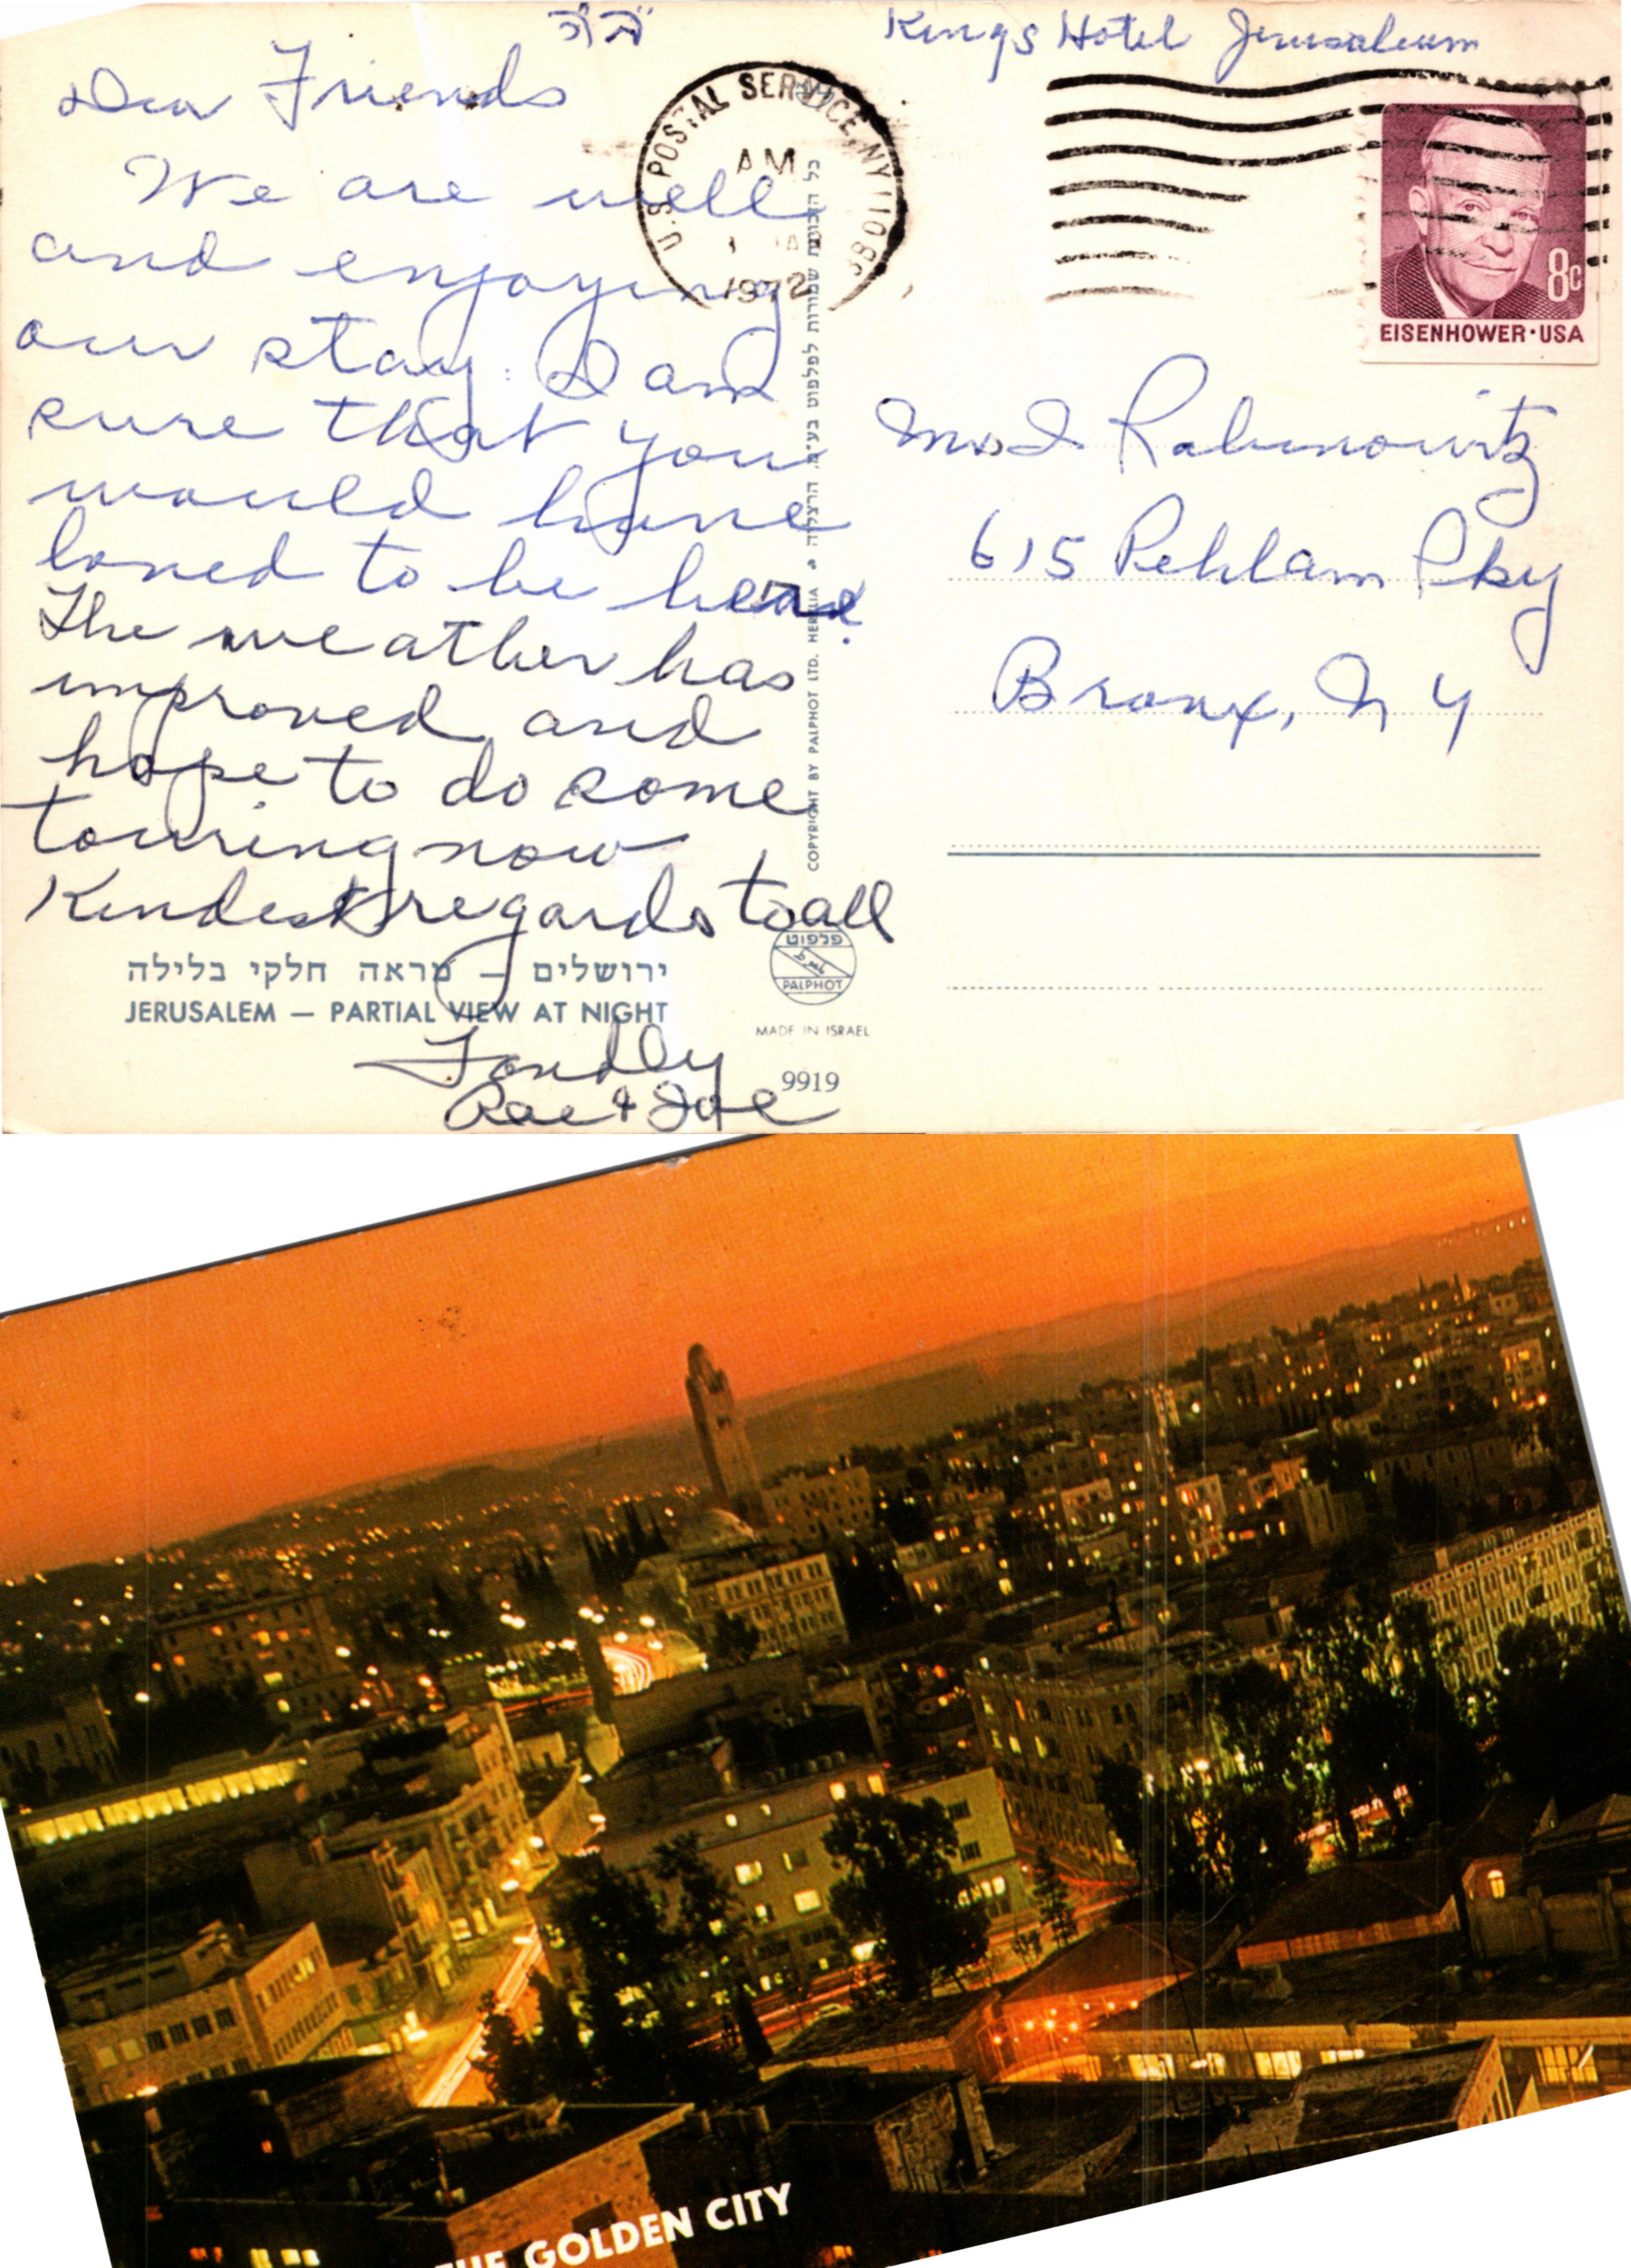 Kings Hotel Jerusaleum
Dear Friends
We are well
and enjoying
our stay. I am
sure that you
would have
loved to be here.
The weather has
improved and
hope to do some
touring now
Kindest regards to all
Fondly
Rae & Joe
U.S. POSTAL SERVICE, NY
AM
1972
8c
EISENHOWER · USA
Mrs I. Rabinowitz
615 Pehlam Pky
Bronx, N Y
כל הזכויות שמורות לפלפוט בע"מ. הרצליה
COPYRIGHT BY PALPHOT LTD. HERZLIA
ירושלים – מראה חלקי בלילה
JERUSALEM — PARTIAL VIEW AT NIGHT
פלפוט
PALPHOT
MADE IN ISRAEL
9919
THE GOLDEN CITY